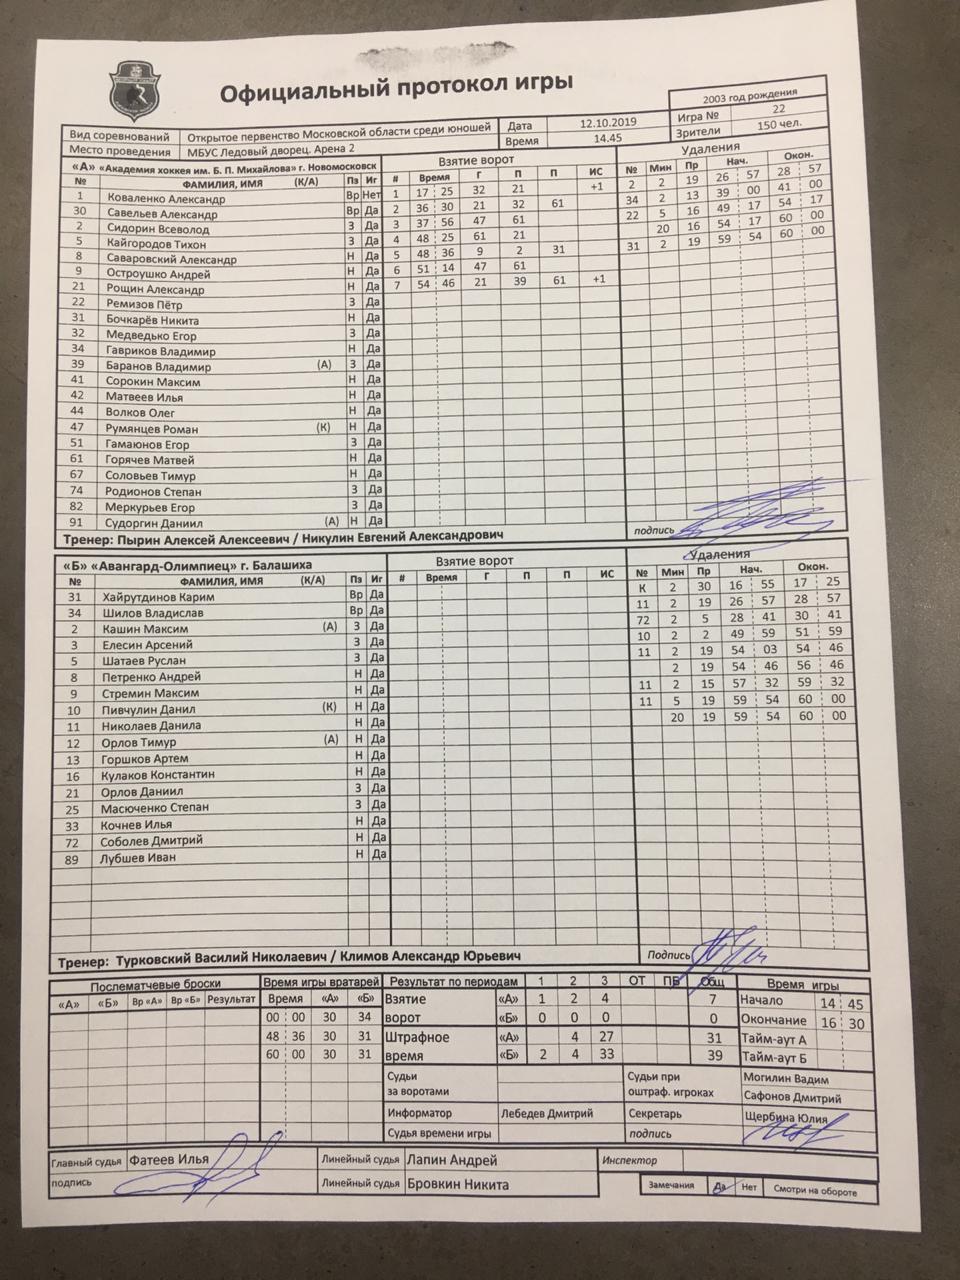 Официальный протокол игры
2003 год рождения
Вид соревнований Открытое первенство Московской области среди юношей Дата 12.10.2019 Игра № 22
Место проведения МБУС Ледовый дворец. Арена 2 Время 14.45 Зрители 150 чел.
«А» «Академия хоккея им. Б. П. Михайлова» г. Новомосковск Взятие ворот Удаления
№ ФАМИЛИЯ, ИМЯ (К/А) Пз Иг # Время Г П П ИС № Мин Пр Нач. Окон.
1 Коваленко Александр Вр Нет 1 17 25 32 21 +1 2 2 19 26 57 28 57
30 Савельев Александр Вр Да 2 36 30 21 32 61 34 2 13 39 00 41 00
2 Сидорин Всеволод З Да 3 37 56 47 61 22 5 16 49 17 54 17
5 Кайгородов Тихон З Да 4 48 25 61 21 20 16 54 17 60 00
8 Саваровский Александр Н Да 5 48 36 9 2 31 31 2 19 59 54 60 00
9 Остроушко Андрей Н Да 6 51 14 47 61
21 Рощин Александр Н Да 7 54 46 21 39 61 +1
22 Ремизов Пётр З Да
31 Бочкарёв Никита Н Да
32 Медведько Егор З Да
34 Гавриков Владимир Н Да
39 Баранов Владимир (А) З Да
41 Сорокин Максим Н Да
42 Матвеев Илья Н Да
44 Волков Олег Н Да
47 Румянцев Роман (К) Н Да
51 Гамаюнов Егор З Да
61 Горячев Матвей Н Да
67 Соловьев Тимур Н Да
74 Родионов Степан З Да
82 Меркурьев Егор З Да
91 Судоргин Даниил (А) Н Да
Тренер: Пырин Алексей Алексеевич / Никулин Евгений Александрович подпись
«Б» «Авангард-Олимпиец» г. Балашиха Взятие ворот Удаления
№ ФАМИЛИЯ, ИМЯ (К/А) Пз Иг # Время Г П П ИС № Мин Пр Нач. Окон.
31 Хайрутдинов Карим Вр Да К 2 30 16 55 17 25
34 Шилов Владислав Вр Да 11 2 19 26 57 28 57
2 Кашин Максим (А) З Да 72 2 5 28 41 30 41
3 Елесин Арсений З Да 10 2 2 49 59 51 59
5 Шатаев Руслан З Да 11 2 19 54 03 54 46
8 Петренко Андрей Н Да 2 19 54 46 56 46
9 Стремин Максим Н Да 11 2 15 57 32 59 32
10 Пивчулин Данил (К) Н Да 11 5 19 59 54 60 00
11 Николаев Данила Н Да 20 19 59 54 60 00
12 Орлов Тимур (А) Н Да
13 Горшков Артем Н Да
16 Кулаков Константин Н Да
21 Орлов Даниил З Да
25 Масюченко Степан З Да
33 Кочнев Илья Н Да
72 Соболев Дмитрий Н Да
89 Лубшев Иван Н Да
Тренер: Турковский Василий Николаевич / Климов Александр Юрьевич Подпись
Послематчевые броски Время игры вратарей Результат по периодам 1 2 3 ОТ ПБ Общ Время игры
«А» «Б» Вр «А» Вр «Б» Результат Время «А» «Б» Взятие «А» 1 2 4 7 Начало 14 45
00 00 30 34 ворот «Б» 0 0 0 0 Окончание 16 30
48 36 30 31 Штрафное «А» 4 27 31 Тайм-аут А
60 00 30 31 время «Б» 2 4 33 39 Тайм-аут Б
Судьи за воротами Судьи при оштраф. игроках Могилин Вадим
Сафонов Дмитрий
Информатор Лебедев Дмитрий Секретарь Щербина Юлия
Судья времени игры подпись
Главный судья Фатеев Илья Линейный судья Лапин Андрей Инспектор
подпись Линейный судья Бровкин Никита Замечания Да Нет Смотри на обороте